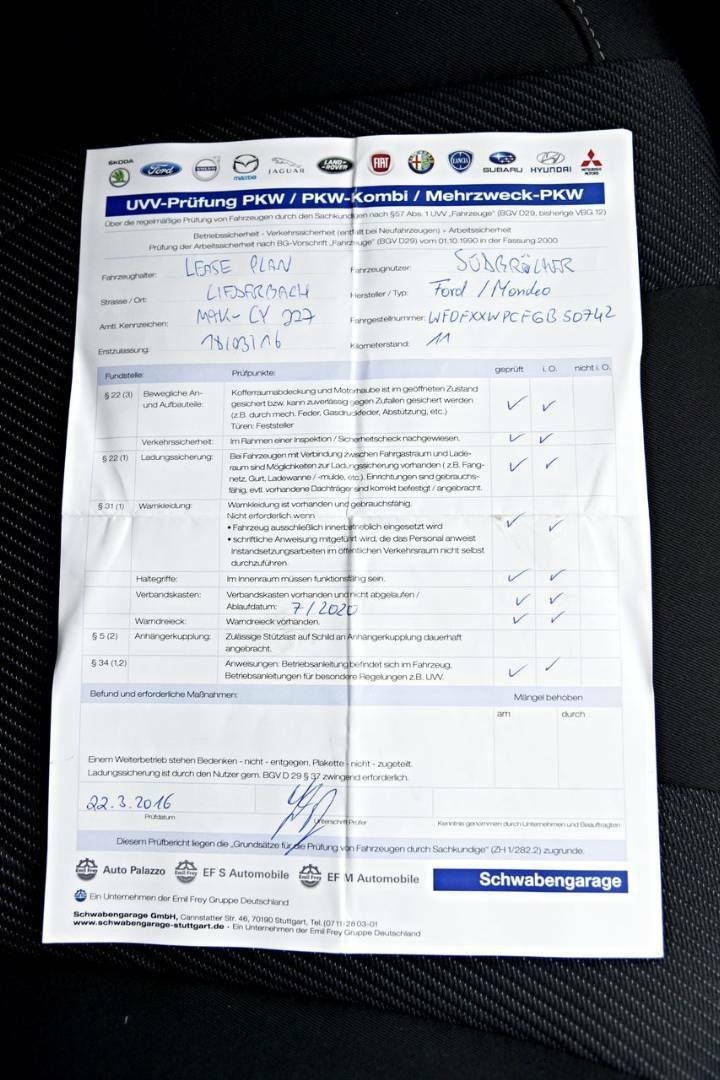 ŠKODA Ford VOLVO mazda JAGUAR LAND-ROVER FIAT LANCIA SUBARU HYUNDAI MITSUBISHI MOTORS
UVV-Prüfung PKW / PKW-Kombi / Mehrzweck-PKW
Über die regelmäßige Prüfung von Fahrzeugen durch den Sachkundigen nach §57 Abs. 1 UVV „Fahrzeuge" (BGV D29, bisherige VBG 12)
Betriebssicherheit - Verkehrssicherheit (entfällt bei Neufahrzeugen) + Arbeitssicherheit
Prüfung der Arbeitssicherheit nach BG-Vorschrift „Fahrzeuge" (BGV D29) vom 01.10.1990 in der Fassung 2000
Fahrzeughalter: LEASE PLAN Fahrzeugnutzer:
Strasse / Ort: LIEDERBACH Hersteller / Typ: Ford / Mondeo
Amtl. Kennzeichen: MTK-CY 227 Fahrgestellnummer:
Erstzulassung: 18/03/16 Kilometerstand: 11
Fundstelle: Prüfpunkte: geprüft i. O. nicht i. O.
§ 22 (3) Bewegliche An- Kofferraumabdeckung und Motorhaube ist im geöffneten Zustand
und Aufbauteile: gesichert bzw. kann zuverlässig gegen Zufallen gesichert werden
(z.B. durch mech. Feder, Gasdruckfeder, Abstützung, etc.)
Türen: Feststeller
Verkehrssicherheit: Im Rahmen einer Inspektion / Sicherheitscheck nachgewiesen.
§ 22 (1) Ladungssicherung: Bei Fahrzeugen mit Verbindung zwischen Fahrgastraum und Lade-
raum sind Möglichkeiten zur Ladungssicherung vorhanden ( z.B. Fang-
netz, Gurt, Ladewanne / -mulde, etc.). Einrichtungen sind gebrauchs-
fähig, evtl. vorhandene Dachträger sind korrekt befestigt / angebracht.
§ 31 (1) Warnkleidung: Warnkleidung ist vorhanden und gebrauchsfähig.
Nicht erforderlich wenn
• Fahrzeug ausschließlich innerbetrieblich eingesetzt wird
• schriftliche Anweisung mitgeführt wird, die das Personal anweist
Instandsetzungsarbeiten im öffentlichen Verkehrsraum nicht selbst
durchzuführen.
Haltegriffe: Im Innenraum müssen funktionsfähig sein.
Verbandskasten: Verbandskasten vorhanden und nicht abgelaufen /
Ablaufdatum: 7/2020
Warndreieck: Warndreieck vorhanden.
§ 5 (2) Anhängerkupplung: Zulässige Stützlast auf Schild an Anhängerkupplung dauerhaft
angebracht.
§ 34 (1,2) Anweisungen: Betriebsanleitung befindet sich im Fahrzeug,
Betriebsanleitungen für besondere Regelungen z.B. UVV.
Befund und erforderliche Maßnahmen: Mängel behoben
am durch
Einem Weiterbetrieb stehen Bedenken - nicht - entgegen, Plakette - nicht - zugeteilt.
Ladungssicherung ist durch den Nutzer gem. BGV D 29 § 37 zwingend erforderlich.
22.3.2016
Prüfdatum Unterschrift Prüfer Kenntnis genommen durch Unternehmen und Beauftragten
Diesem Prüfbericht liegen die „Grundsätze für die Prüfung von Fahrzeugen durch Sachkundige" (ZH 1/282.2) zugrunde.
Emil Frey Auto Palazzo Emil Frey EF S Automobile Emil Frey EF M Automobile Schwabengarage
Ein Unternehmen der Emil Frey Gruppe Deutschland
Schwabengarage GmbH, Cannstatter Str. 46, 70190 Stuttgart, Tel. (07 11) 28 03-01
www.schwabengarage-stuttgart.de - Ein Unternehmen der Emil Frey Gruppe Deutschland